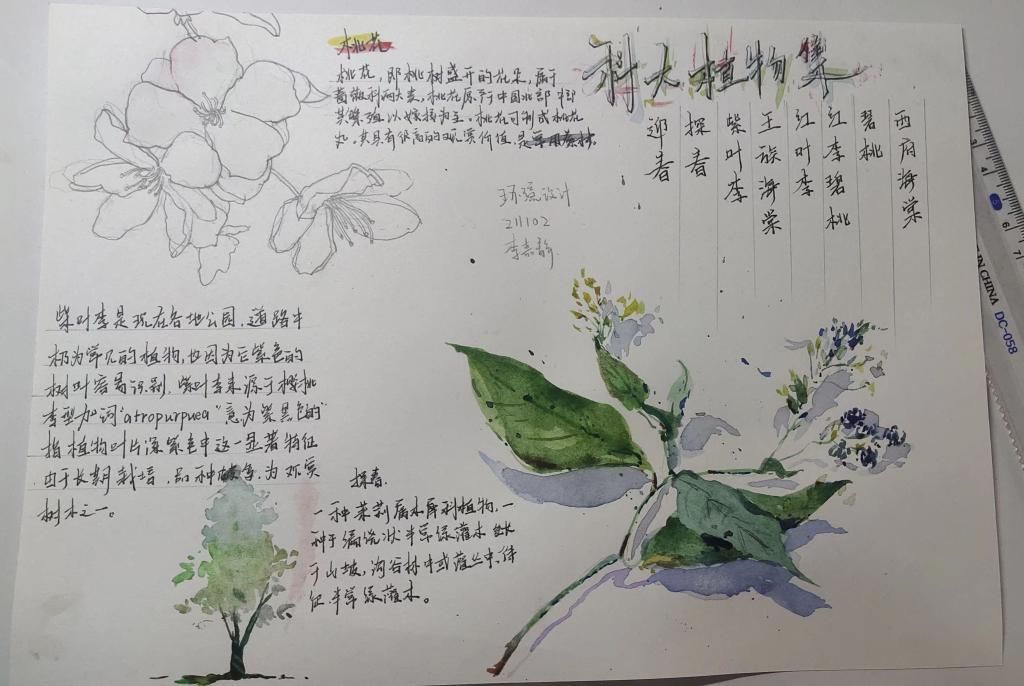 科大植物集
西府海棠
碧桃
红李碧桃
红叶李
王族海棠
紫叶李
探春
迎春
桃花
桃花，即桃树盛开的花朵，属于
蔷薇科
其繁殖以嫁接为主，桃花可制成桃花
丸，其具有很高的观赏价值，是
环境设计
211102
李嘉静
紫叶李是现在各地公园，道路中
极为常见的植物，也因为它紫色的
树叶容易识别，紫叶李来源于樱桃
李型加词"atropurpuea"意为紫黑色的"
指植物叶片深紫色中这一显著特征
由于长期栽培，品种 为观赏
树木之一。
探春.
一种茉莉属木犀科植物，一
种于 状半常绿灌木 生长
于山坡，沟谷林中或灌丛中，
半常绿灌木。
IN CHINA DC-058